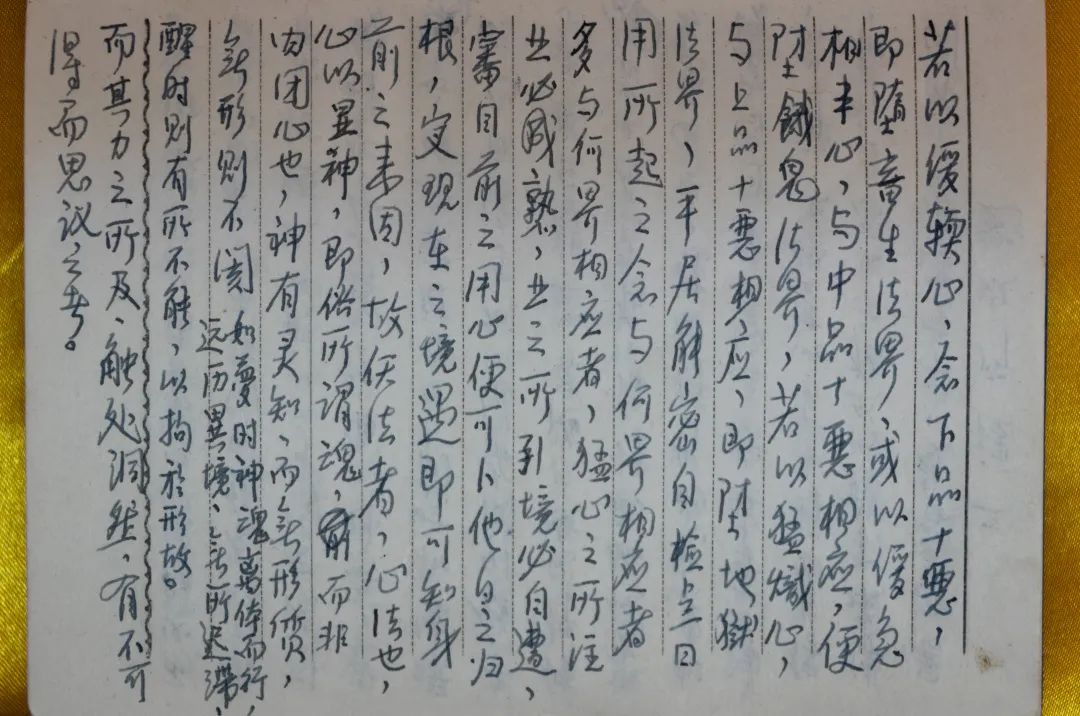 若以缓软心、念下品十恶，
即堕畜生法界、或以缓急
相半心，与中品十恶相应，便
堕饿鬼法界，若以猛炽心，
与上品十恶相应，即堕地狱
法界，平居能密自检点日
用所起之念与何界相应者
多与何界相应者，猛心之所注
业必成熟，业之所引境必自遭，
审目前之用心便可卜他日之归
根，究现在之境遇即可知身
前之来因，故伏法者，心法也，
心以显神，即俗所谓魂，而非
肉团心也，神有灵知，而无形质，
无形则不阂 如梦时神魂离体而行，
远历异境、无所迟滞，
醒时则有所不能，以拘於形故。
而其力之所及、触处洞然，有不可
得而思议之者。